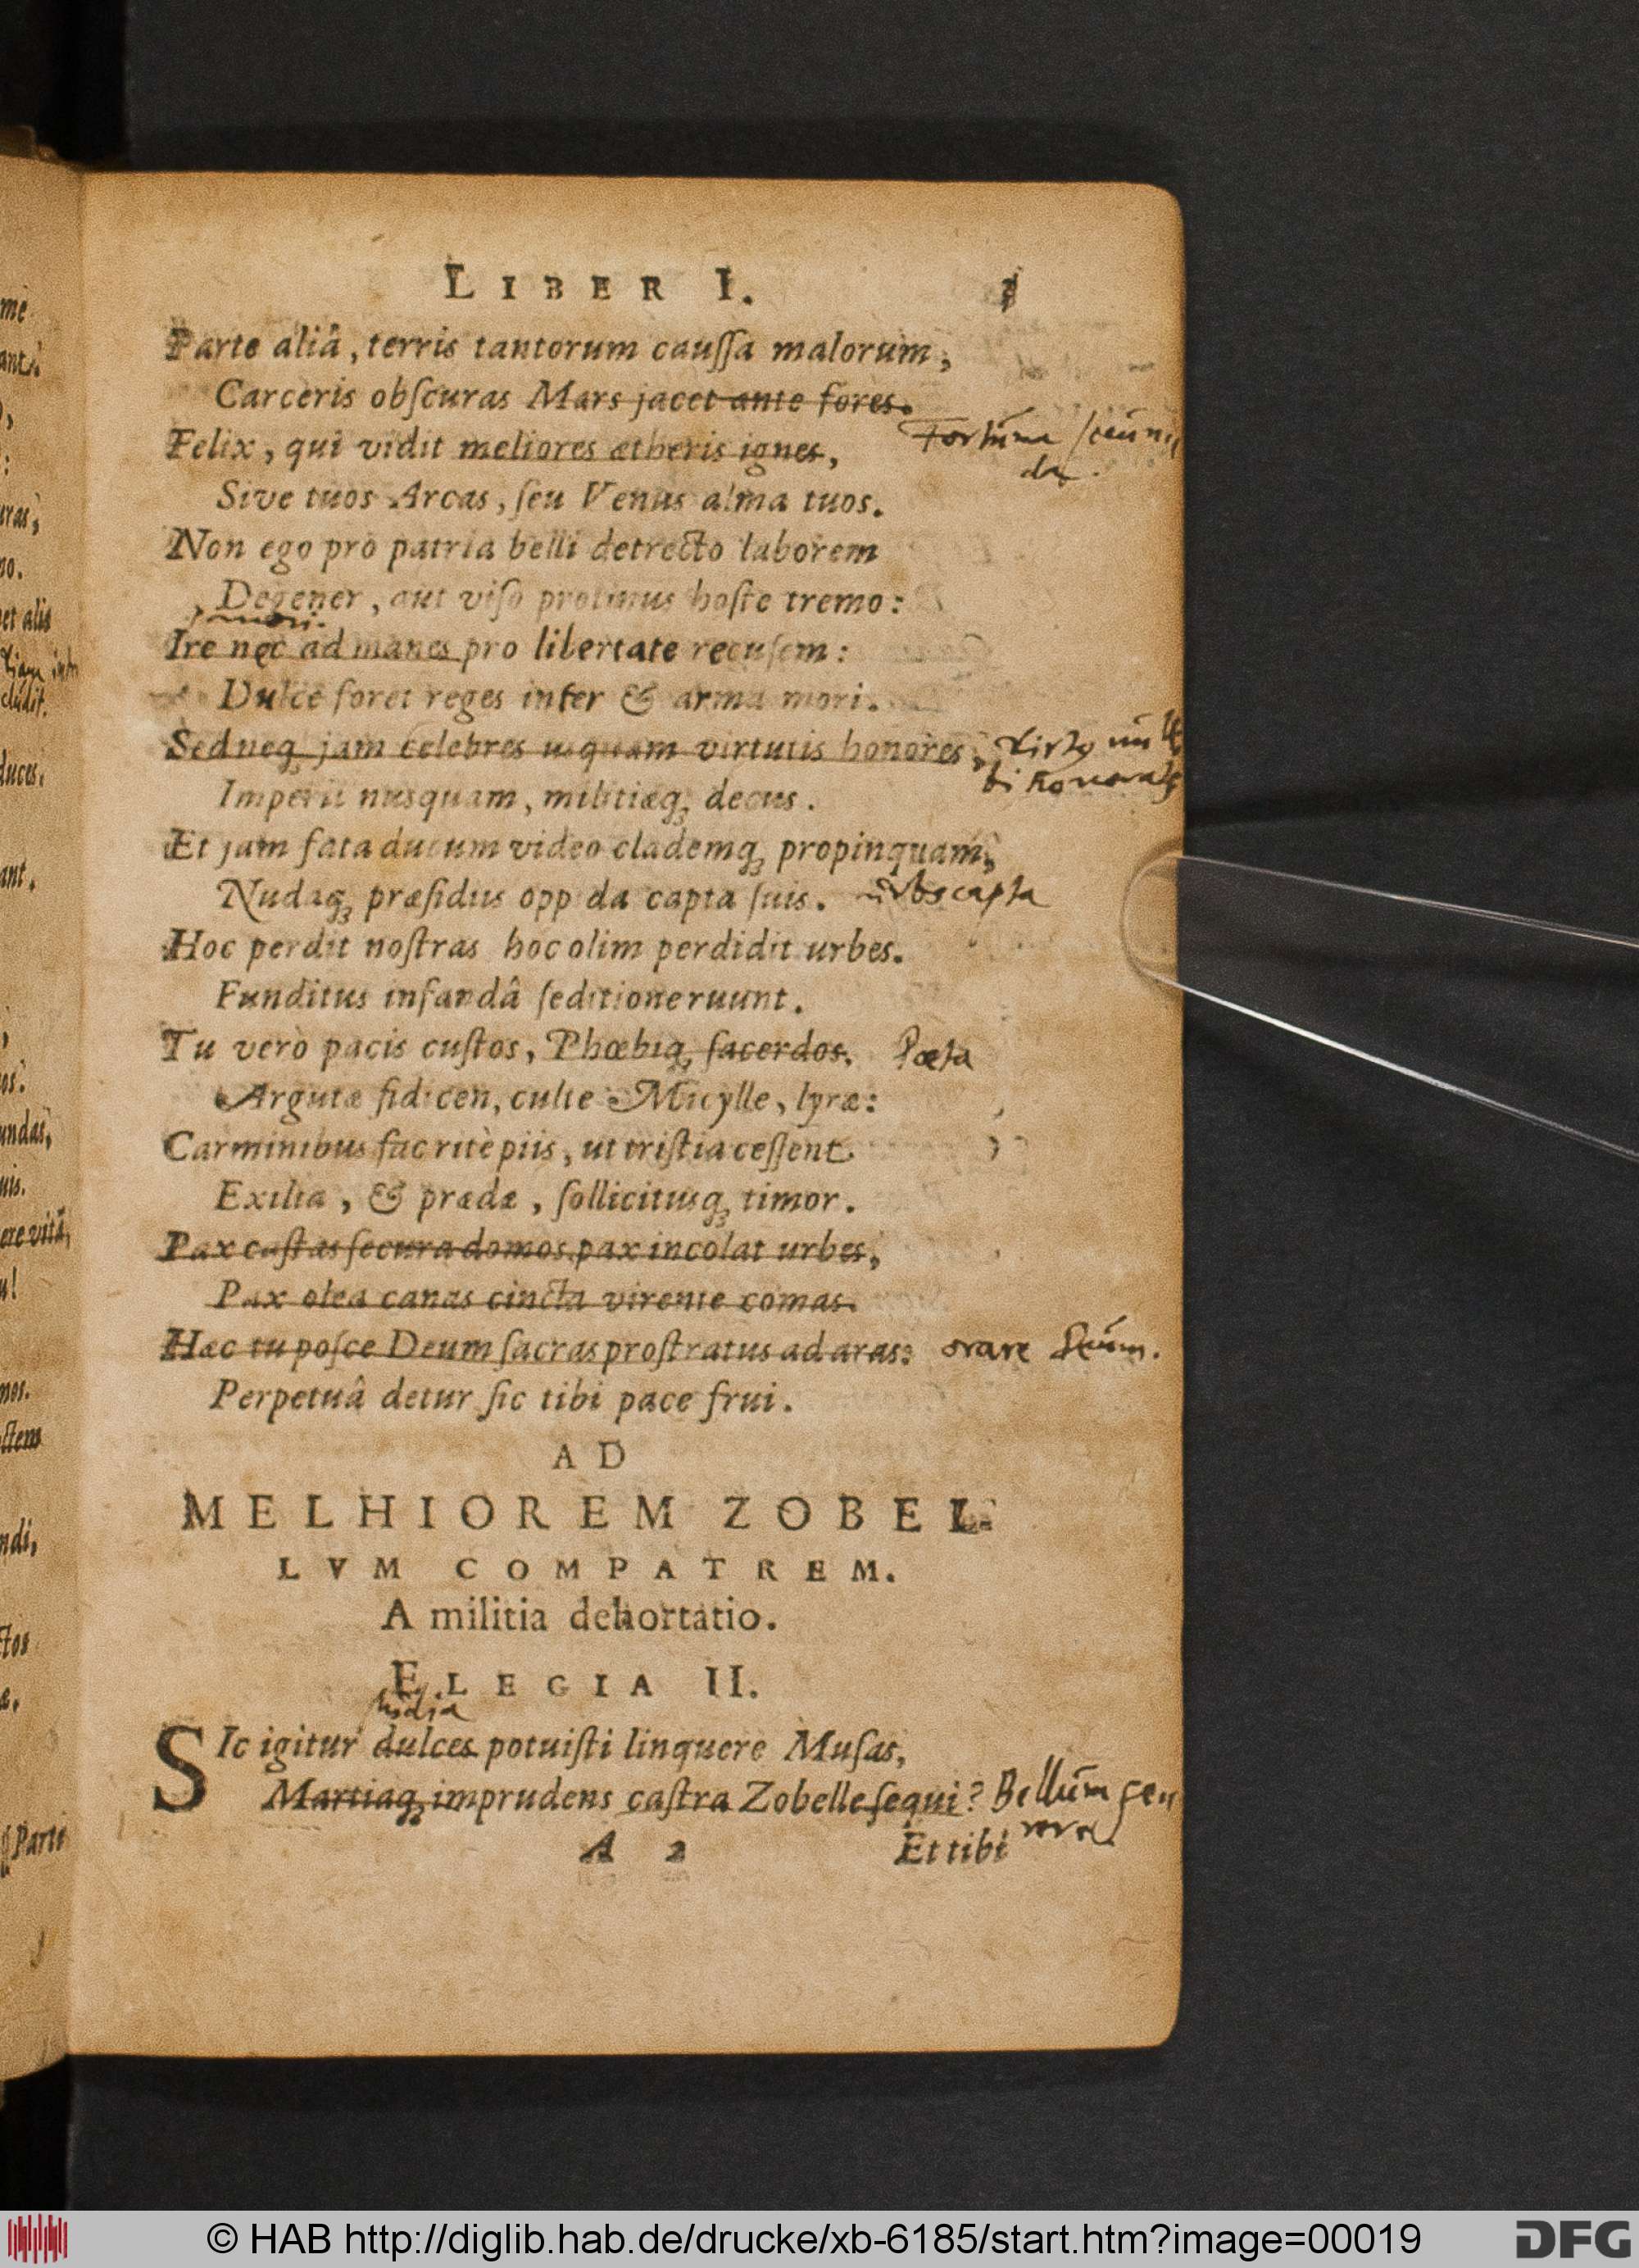 LIBER I. 3
Parte aliâ, terris tantorum cauſſa malorum,
Carceris obſcuras Mars jacet ante fores.
Felix, qui vidit meliores ætheris ignes,
Fortuna
da.
Sive tuos Arcas, ſeu Venus alma tuos.
Non ego pro patria belli detrecto laborem
Degener, aut viſo protinus hoſte tremo:
mori.
Ire nec ad manes pro libertate recuſem:
Dulce foret reges inter & arma mori.
Sed neq; jam celebres usquam virtutis honores,
Imperii nusquam, militiæq; decus.
Et jam fata ducum video clademq; propinquam,
Nudaq; præſidiis oppida capta ſuis. urbs capta
Hoc perdit noſtras hoc olim perdidit urbes.
Funditus infandâ ſeditione ruunt.
Tu verò pacis cuſtos, Phœbiq; ſacerdos. Poeta
Argutæ fidicen, culte Micylle, lyræ:
Carminibus fac ritè piis, ut triſtia ceſſent
Exilia, & prædæ, ſollicitusq; timor.
Pax caſtas ſecura domos, pax incolat urbes,
Pax olea canas cincta virente comas.
Hæc tu poſce Deum ſacras proſtratus ad aras: orare Deum.
Perpetuâ detur ſic tibi pace frui.
AD
MELHIOREM ZOBEL-
LVM COMPATREM.
A militia dehortatio.
ELEGIA II.
studia
SIc igitur dulces potuiſti linquere Muſas,
Martiaq; imprudens caſtra Zobelle ſequi? Bellum
A 2 Et tibi
© HAB http://diglib.hab.de/drucke/xb-6185/start.htm?image=00019 DFG